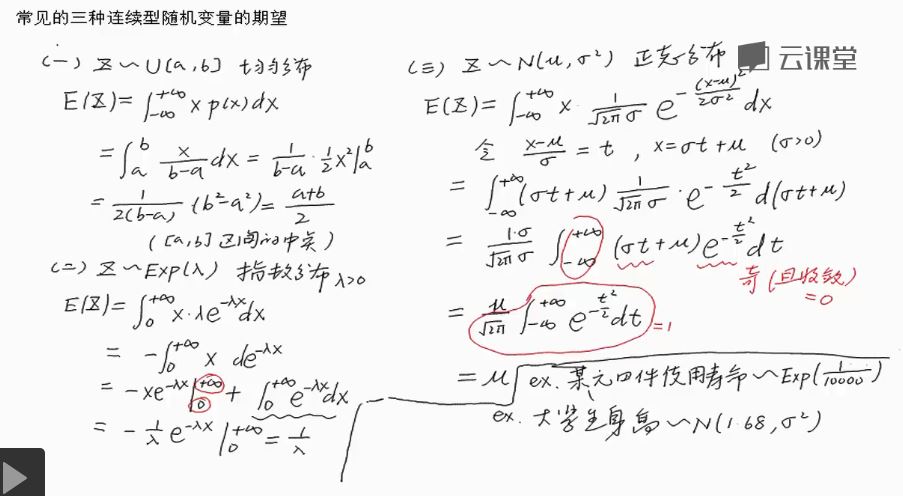 常见的三种连续型随机变量的期望
(一) X~U[a,b] 均匀分布
E(X)=∫_{-∞}^{+∞} x p(x)dx
=∫_a^b x/(b-a) dx = 1/(b-a)·1/2 x²|_a^b
=1/(2(b-a)) (b²-a²)=(a+b)/2
([a,b]区间的中点)
(二) X~Exp(λ) 指数分布 λ>0
E(X)=∫_0^{+∞} x·λe^{-λx}dx
= -∫_0^{+∞} x de^{-λx}
= -xe^{-λx}|_0^{+∞} + ∫_0^{+∞} e^{-λx}dx
= -1/λ e^{-λx}|_0^{+∞} = 1/λ
(三) X~N(μ,σ²) 正态分布
云课堂
E(X)=∫_{-∞}^{+∞} x·1/(√2π σ) e^{-(x-μ)²/2σ²} dx
令 (x-μ)/σ = t , x=σt+μ (σ>0)
= ∫_{-∞}^{+∞} (σt+μ) 1/(√2π σ)·e^{-t²/2} d(σt+μ)
= 1·σ/(√2π σ) ∫_{-∞}^{+∞} (σt+μ) e^{-t²/2} dt
奇(且收敛)
=0
= μ/√2π ∫_{-∞}^{+∞} e^{-t²/2} dt =1
= μ
ex. 某元器件使用寿命~Exp(1/10000)
ex. 大学生身高~N(1.68,σ²)